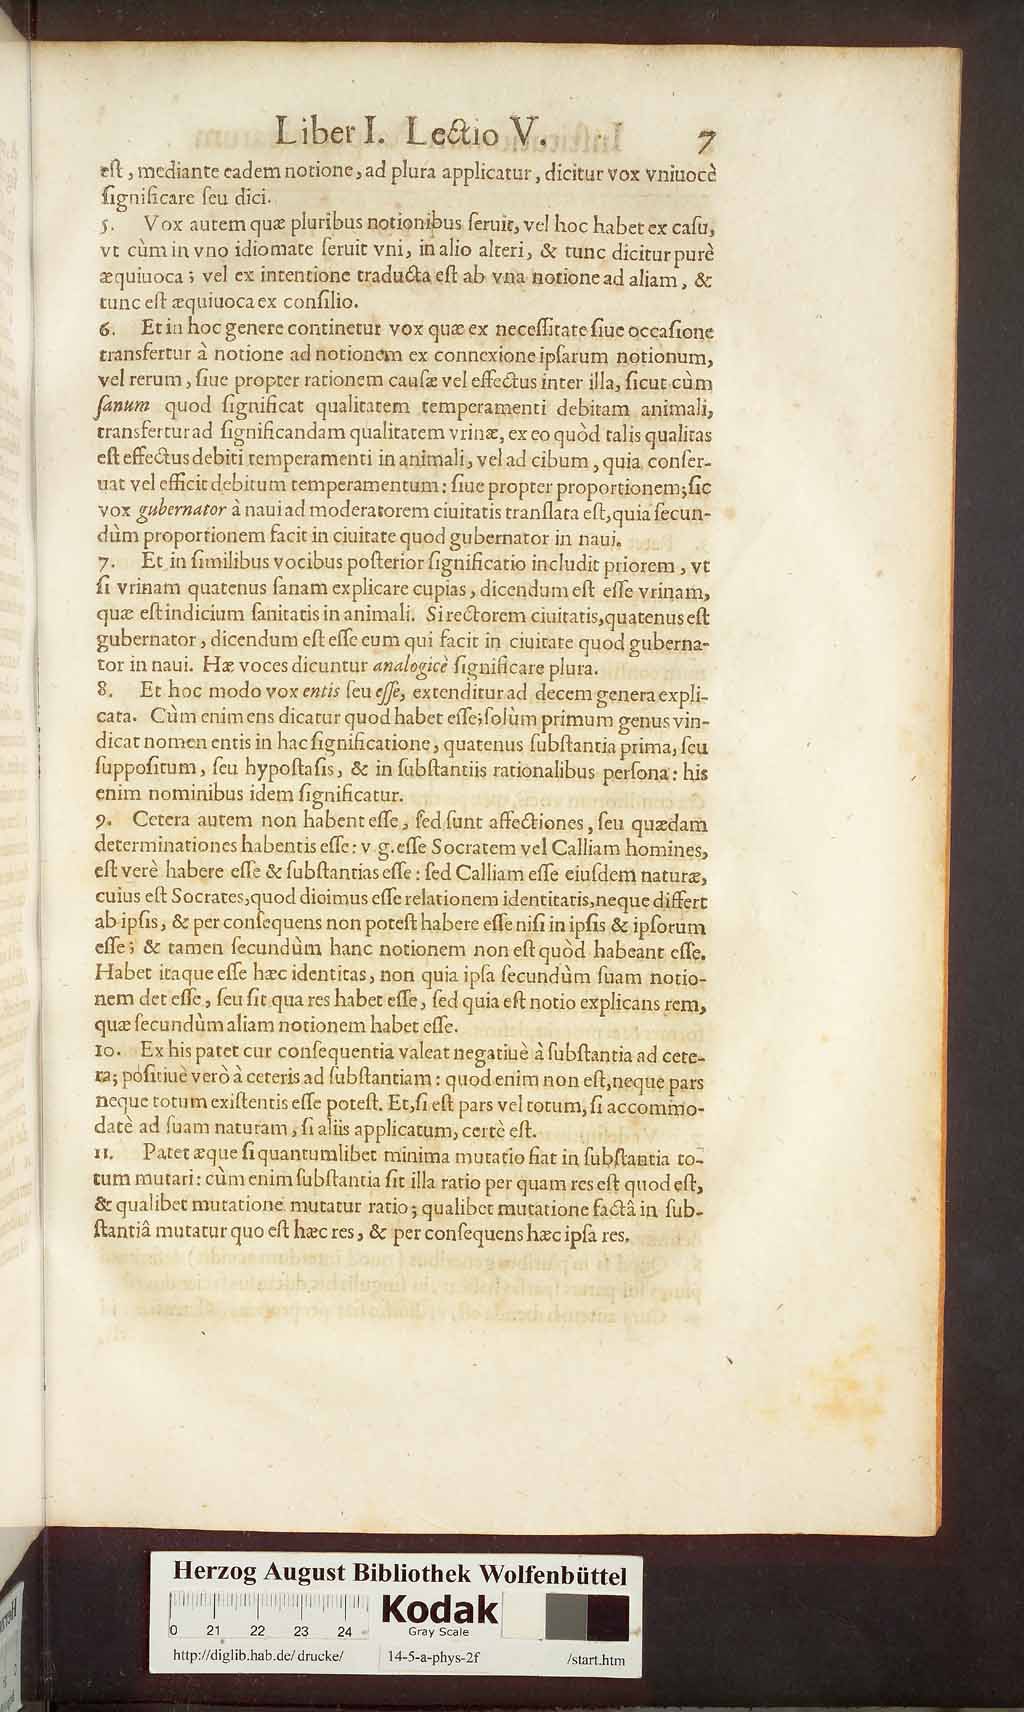 Liber I. Lectio V. 7
est, mediante eadem notione, ad plura applicatur, dicitur vox vniuocè
ſignificare ſeu dici.
5. Vox autem quæ pluribus notionibus ſeruit, vel hoc habet ex caſu,
vt cùm in vno idiomate ſeruit vni, in alio alteri, & tunc dicitur purè
æquiuoca; vel ex intentione traducta eſt ab vna notione ad aliam, &
tunc eſt æquiuoca ex conſilio.
6. Et in hoc genere continetur vox quæ ex neceſſitate ſiue occaſione
transfertur à notione ad notionem ex connexione ipſarum notionum,
vel rerum, ſiue propter rationem cauſæ vel effectus inter illa, ſicut cùm
ſanum quod ſignificat qualitatem temperamenti debitam animali,
transfertur ad ſignificandam qualitatem vrinæ, ex eo quòd talis qualitas
eſt effectus debiti temperamenti in animali, vel ad cibum, quia conſer-
uat vel efficit debitum temperamentum: ſiue propter proportionem; ſic
vox gubernator à naui ad moderatorem ciuitatis tranſlata eſt, quia ſecun-
dùm proportionem facit in ciuitate quod gubernator in naui.
7. Et in ſimilibus vocibus poſterior ſignificatio includit priorem, vt
ſi vrinam quatenus ſanam explicare cupias, dicendum eſt eſſe vrinam,
quæ eſt indicium ſanitatis in animali. Si rectorem ciuitatis, quatenus eſt
gubernator, dicendum eſt eſſe eum qui facit in ciuitate quod guberna-
tor in naui. Hæ voces dicuntur analogicè ſignificare plura.
8. Et hoc modo vox entis ſeu eſſe, extenditur ad decem genera expli-
cata. Cùm enim ens dicatur quod habet eſſe; ſolùm primum genus vin-
dicat nomen entis in hac ſignificatione, quatenus ſubſtantia prima, ſeu
ſuppoſitum, ſeu hypoſtaſis, & in ſubſtantiis rationalibus perſona: his
enim nominibus idem ſignificatur.
9. Cetera autem non habent eſſe, ſed ſunt affectiones, ſeu quædam
determinationes habentis eſſe: v g. eſſe Socratem vel Calliam homines,
eſt verè habere eſſe & ſubſtantias eſſe: ſed Calliam eſſe eiuſdem naturæ,
cuius eſt Socrates, quod dicimus eſſe relationem identitatis, neque differt
ab ipſis, & per conſequens non poteſt habere eſſe niſi in ipſis & ipſorum
eſſe; & tamen ſecundùm hanc notionem non eſt quòd habeant eſſe.
Habet itaque eſſe hæc identitas, non quia ipſa ſecundùm ſuam notio-
nem det eſſe, ſeu ſit qua res habet eſſe, ſed quia eſt notio explicans rem,
quæ ſecundùm aliam notionem habet eſſe.
10. Ex his patet cur conſequentia valeat negatiuè à ſubſtantia ad cete-
ra; poſitiuè verò à ceteris ad ſubſtantiam: quod enim non eſt, neque pars
neque totum exiſtentis eſſe poteſt. Et, ſi eſt pars vel totum, ſi accommo-
datè ad ſuam naturam, ſi aliis applicatum, certè eſt.
11. Patet æque ſi quantumlibet minima mutatio fiat in ſubſtantia to-
tum mutari: cùm enim ſubſtantia ſit illa ratio per quam res eſt quod eſt,
& qualibet mutatione mutatur ratio; qualibet mutatione factâ in ſub-
ſtantiâ mutatur quo eſt hæc res, & per conſequens hæc ipſa res.
Herzog August Bibliothek Wolfenbüttel
0 21 22 23 24
Kodak
Gray Scale
http://diglib.hab.de/drucke/ 14-5-a-phys-2f /start.htm